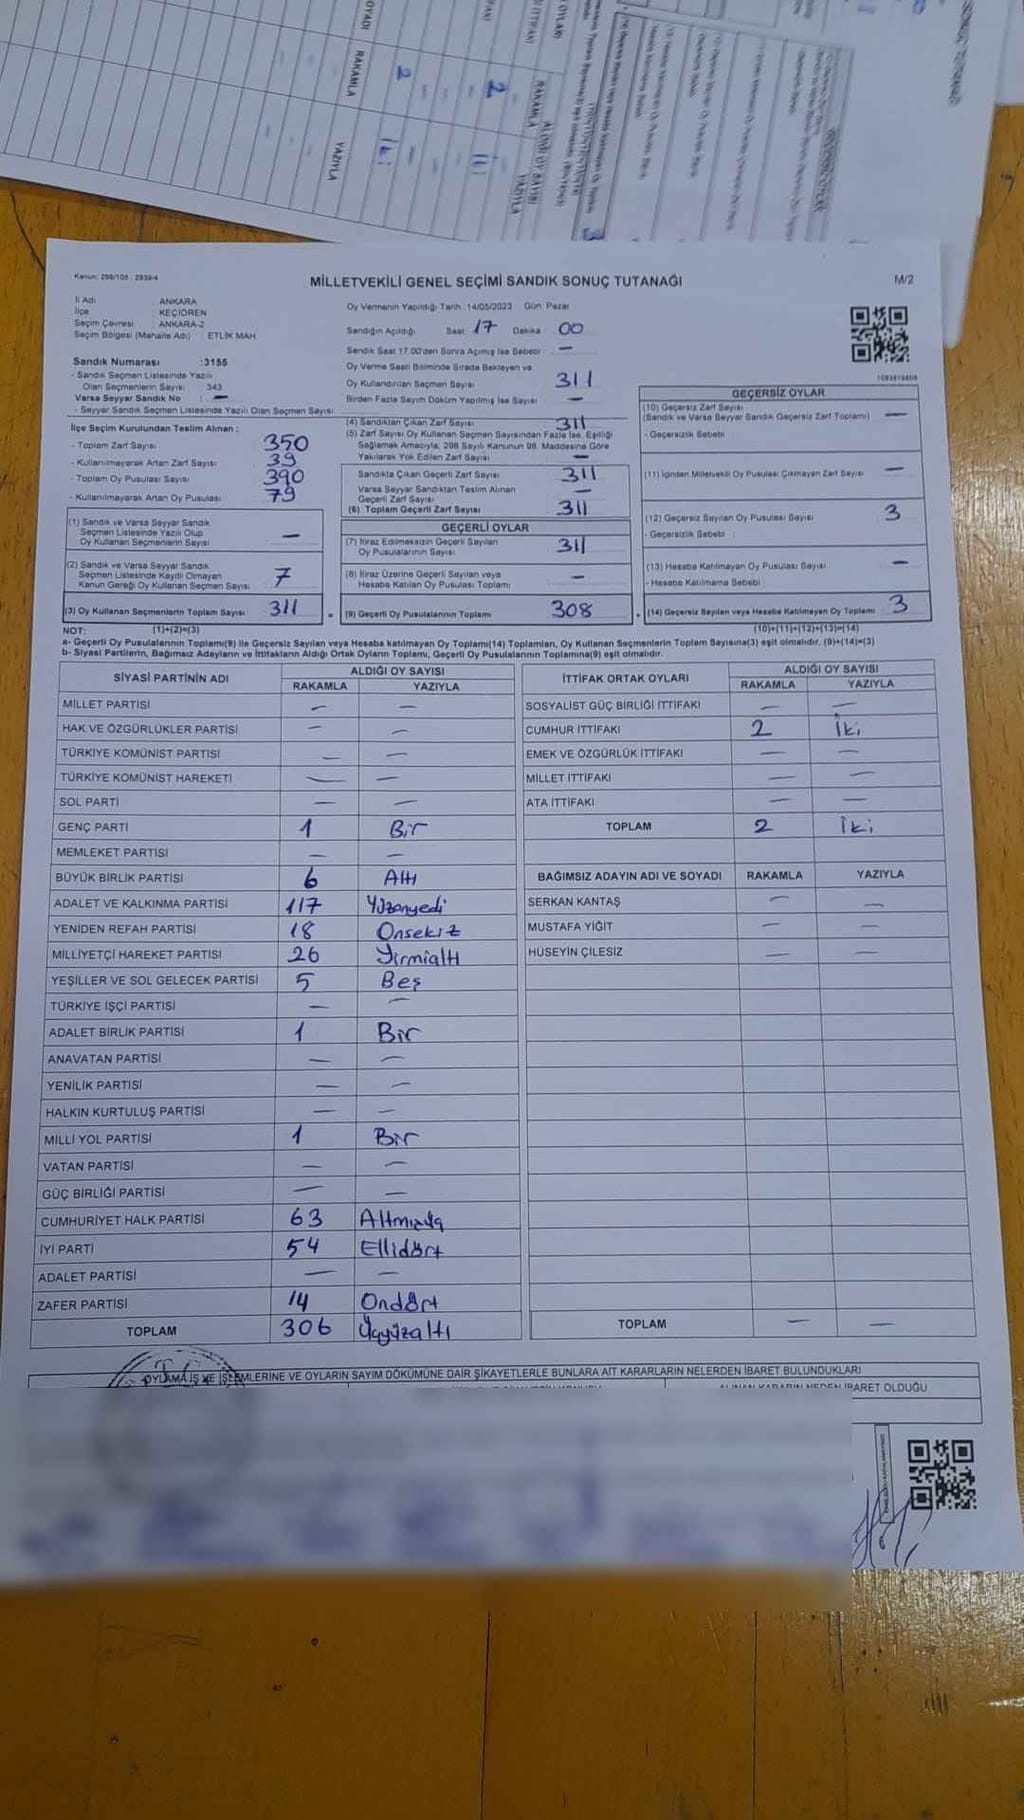 OYADI
RAKAMLA
YAZIYLA
2
İki
2
İki
RAKAMLA
YAZIYLA
3
Kanun: 298/105 - 2839/4
MİLLETVEKİLİ GENEL SEÇİMİ SANDIK SONUÇ TUTANAĞI
M/2
İl Adı : ANKARA
İlçe : KEÇİÖREN
Seçim Çevresi : ANKARA-2
Seçim Bölgesi (Mahalle Adı) : ETLİK MAH.
Oy Vermenin Yapıldığı Tarih : 14/05/2023 Gün: Pazar
Sandığın Açıldığı Saat: 17 Dakika : 00
Sandık Saat 17.00'den Sonra Açılmış İse Sebebi : —
Oy Verme Saati Bitiminde Sırada Bekleyen ve
Oy Kullandırılan Seçmen Sayısı 311
Birden Fazla Sayım Döküm Yapılmış İse Sayısı —
Sandık Numarası :3155
- Sandık Seçmen Listesinde Yazılı
Olan Seçmenlerin Sayısı : 343
Varsa Seyyar Sandık No : —
- Seyyar Sandık Seçmen Listesinde Yazılı Olan Seçmen Sayısı
İlçe Seçim Kurulundan Teslim Alınan :
- Toplam Zarf Sayısı 350
- Kullanılmayarak Artan Zarf Sayısı 39
- Toplam Oy Pusulası Sayısı 390
- Kullanılmayarak Artan Oy Pusulası 79
(1) Sandık ve Varsa Seyyar Sandık
Seçmen Listesinde Yazılı Olup
Oy Kullanan Seçmenlerin Sayısı —
(2) Sandık ve Varsa Seyyar Sandık
Seçmen Listesinde Kayıtlı Olmayan
Kanun Gereği Oy Kullanan Seçmen Sayısı 7
(3) Oy Kullanan Seçmenlerin Toplam Sayısı 311
(1)+(2)=(3)
(4) Sandıktan Çıkan Zarf Sayısı 311
(5) Zarf Sayısı Oy Kullanan Seçmen Sayısından Fazla İse, Eşitliği
Sağlamak Amacıyla, 298 Sayılı Kanunun 98. Maddesine Göre
Yakılarak Yok Edilen Zarf Sayısı —
Sandıkta Çıkan Geçerli Zarf Sayısı 311
Varsa Seyyar Sandıktan Teslim Alınan
Geçerli Zarf Sayısı —
(6) Toplam Geçerli Zarf Sayısı 311
GEÇERLİ OYLAR
(7) İtiraz Edilmeksizin Geçerli Sayılan
Oy Pusulalarının Sayısı 311
(8) İtiraz Üzerine Geçerli Sayılan veya
Hesaba Katılan Oy Pusulası Toplamı —
= (9) Geçerli Oy Pusulalarının Toplamı 308
1093876809
GEÇERSİZ OYLAR
(10) Geçersiz Zarf Sayısı
(Sandık ve Varsa Seyyar Sandık Geçersiz Zarf Toplamı) —
- Geçersizlik Sebebi
(11) İçinden Milletvekili Oy Pusulası Çıkmayan Zarf Sayısı —
(12) Geçersiz Sayılan Oy Pusulası Sayısı 3
- Geçersizlik Sebebi :
(13) Hesaba Katılmayan Oy Pusulası Sayısı —
- Hesaba Katılmama Sebebi
+ (14) Geçersiz Sayılan veya Hesaba Katılmayan Oy Toplamı 3
(10)+(11)+(12)+(13)=(14)
NOT:
a- Geçerli Oy Pusulalarının Toplamı(9) ile Geçersiz Sayılan veya Hesaba katılmayan Oy Toplamı(14) Toplamları, Oy Kullanan Seçmenlerin Toplam Sayısına(3) eşit olmalıdır. (9)+(14)=(3)
b- Siyasi Partilerin, Bağımsız Adayların ve İttifakların Aldığı Ortak Oyların Toplamı, Geçerli Oy Pusulalarının Toplamına(9) eşit olmalıdır.
SİYASİ PARTİNİN ADI ALDIĞI OY SAYISI
RAKAMLA YAZIYLA
MİLLET PARTİSİ — —
HAK VE ÖZGÜRLÜKLER PARTİSİ — —
TÜRKİYE KOMÜNİST PARTİSİ — —
TÜRKİYE KOMÜNİST HAREKETİ — —
SOL PARTİ — —
GENÇ PARTİ 1 Bir
MEMLEKET PARTİSİ — —
BÜYÜK BİRLİK PARTİSİ 6 Altı
ADALET VE KALKINMA PARTİSİ 117 Yüzonyedi
YENİDEN REFAH PARTİSİ 18 Onsekiz
MİLLİYETÇİ HAREKET PARTİSİ 26 Yirmialtı
YEŞİLLER VE SOL GELECEK PARTİSİ 5 Beş
TÜRKİYE İŞÇİ PARTİSİ — —
ADALET BİRLİK PARTİSİ 1 Bir
ANAVATAN PARTİSİ — —
YENİLİK PARTİSİ — —
HALKIN KURTULUŞ PARTİSİ — —
MİLLİ YOL PARTİSİ 1 Bir
VATAN PARTİSİ — —
GÜÇ BİRLİĞİ PARTİSİ — —
CUMHURİYET HALK PARTİSİ 63 Altmışüç
İYİ PARTİ 54 Ellidört
ADALET PARTİSİ — —
ZAFER PARTİSİ 14 Ondört
TOPLAM 306 Üçyüzaltı
İTTİFAK ORTAK OYLARI ALDIĞI OY SAYISI
RAKAMLA YAZIYLA
SOSYALİST GÜÇ BİRLİĞİ İTTİFAKI — —
CUMHUR İTTİFAKI 2 İki
EMEK VE ÖZGÜRLÜK İTTİFAKI — —
MİLLET İTTİFAKI — —
ATA İTTİFAKI — —
TOPLAM 2 İki
BAĞIMSIZ ADAYIN ADI VE SOYADI RAKAMLA YAZIYLA
SERKAN KANTAŞ — —
MUSTAFA YİĞİT — —
HÜSEYİN ÇİLESİZ — —
TOPLAM — —
OYLAMA İŞ VE İŞLEMLERİNE VE OYLARIN SAYIM DÖKÜMÜNE DAİR ŞİKAYETLERLE BUNLARA AİT KARARLARIN NELERDEN İBARET BULUNDUKLARI
ALINAN KARARIN NEDEN İBARET OLDUĞU